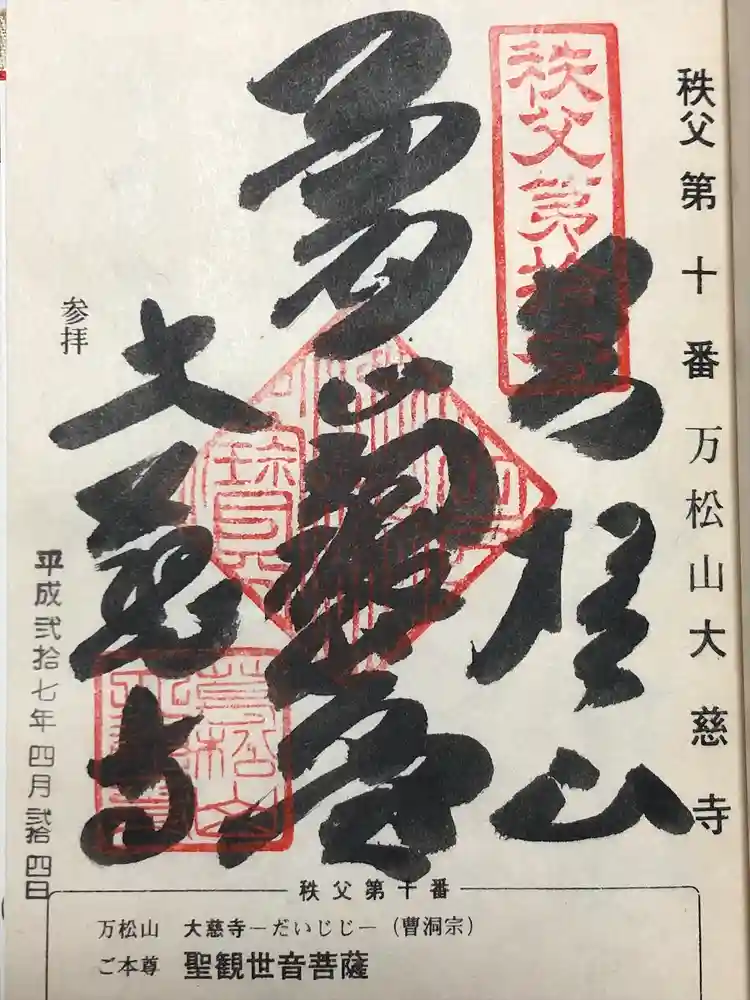 秩父第十番 万松山大慈寺
秩父第拾番
万松山
大慈寺
参拝
平成弐拾七年四月弐拾四日
万松山
秩父第十番
万松山 大慈寺－だいじじ－（曹洞宗）
ご本尊 聖観世音菩薩